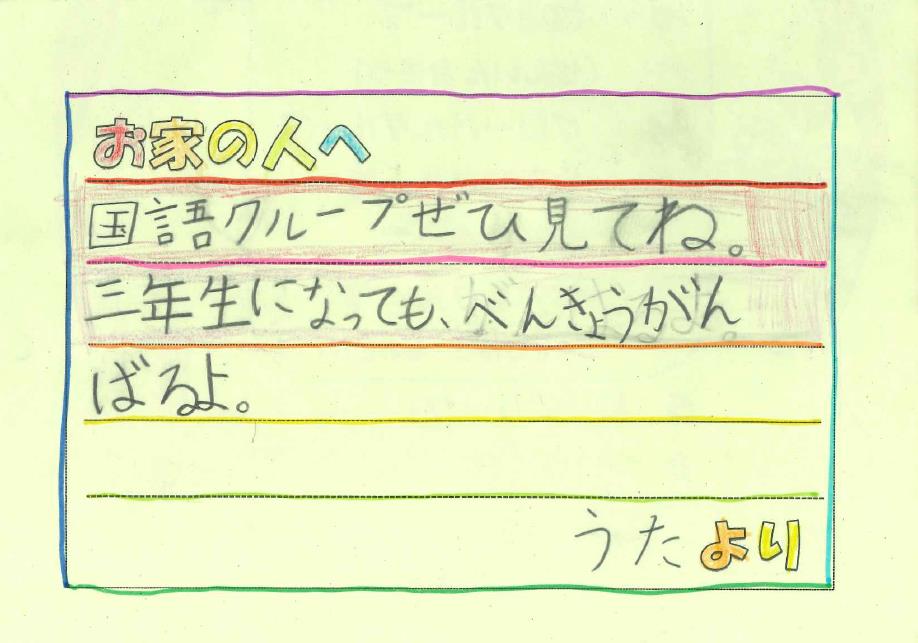 お家の人へ
国語クループぜひ見てね。
三年生になっても、べんきょうがん
ばるよ。
うたより